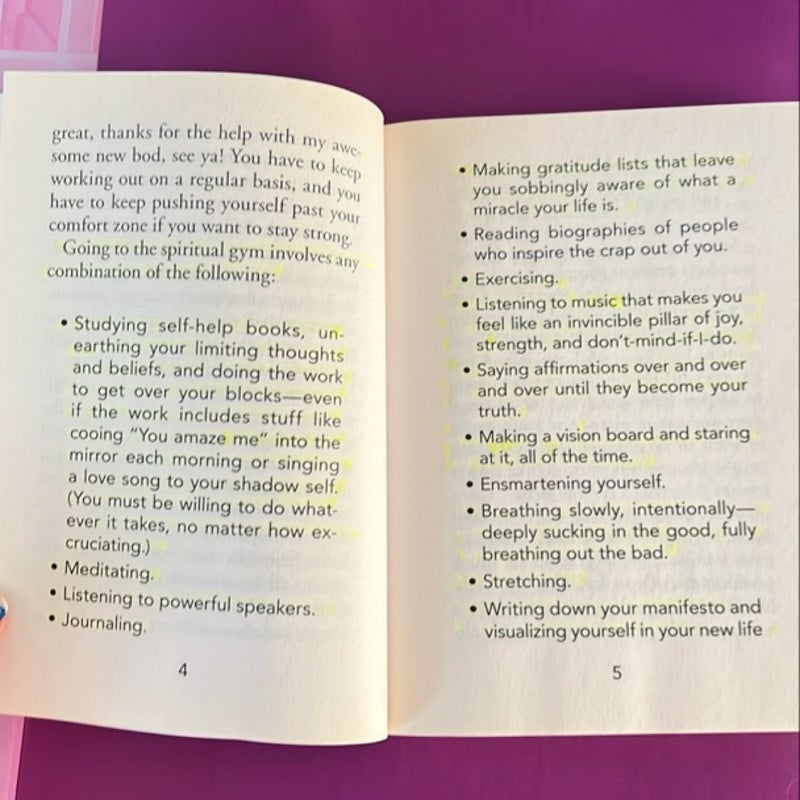 great, thanks for the help with my awe-
some new bod, see ya! You have to keep
working out on a regular basis, and you
have to keep pushing yourself past your
comfort zone if you want to stay strong.
Going to the spiritual gym involves any
combination of the following:
• Studying self-help books, un-
earthing your limiting thoughts
and beliefs, and doing the work
to get over your blocks—even
if the work includes stuff like
cooing "You amaze me" into the
mirror each morning or singing
a love song to your shadow self.
(You must be willing to do what-
ever it takes, no matter how ex-
cruciating.)
• Meditating.
• Listening to powerful speakers.
• Journaling.
4
• Making gratitude lists that leave
you sobbingly aware of what a
miracle your life is.
• Reading biographies of people
who inspire the crap out of you.
• Exercising.
• Listening to music that makes you
feel like an invincible pillar of joy,
strength, and don't-mind-if-I-do.
• Saying affirmations over and over
and over until they become your
truth.
• Making a vision board and staring
at it, all of the time.
• Ensmartening yourself.
• Breathing slowly, intentionally—
deeply sucking in the good, fully
breathing out the bad.
• Stretching.
• Writing down your manifesto and
visualizing yourself in your new life
5